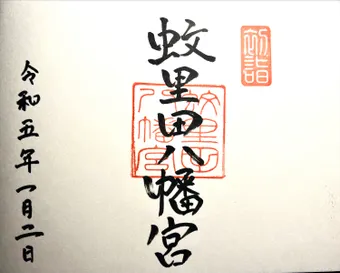 初詣
蚊里田八幡宮
蚊里田八幡宮
令和五年一月二日